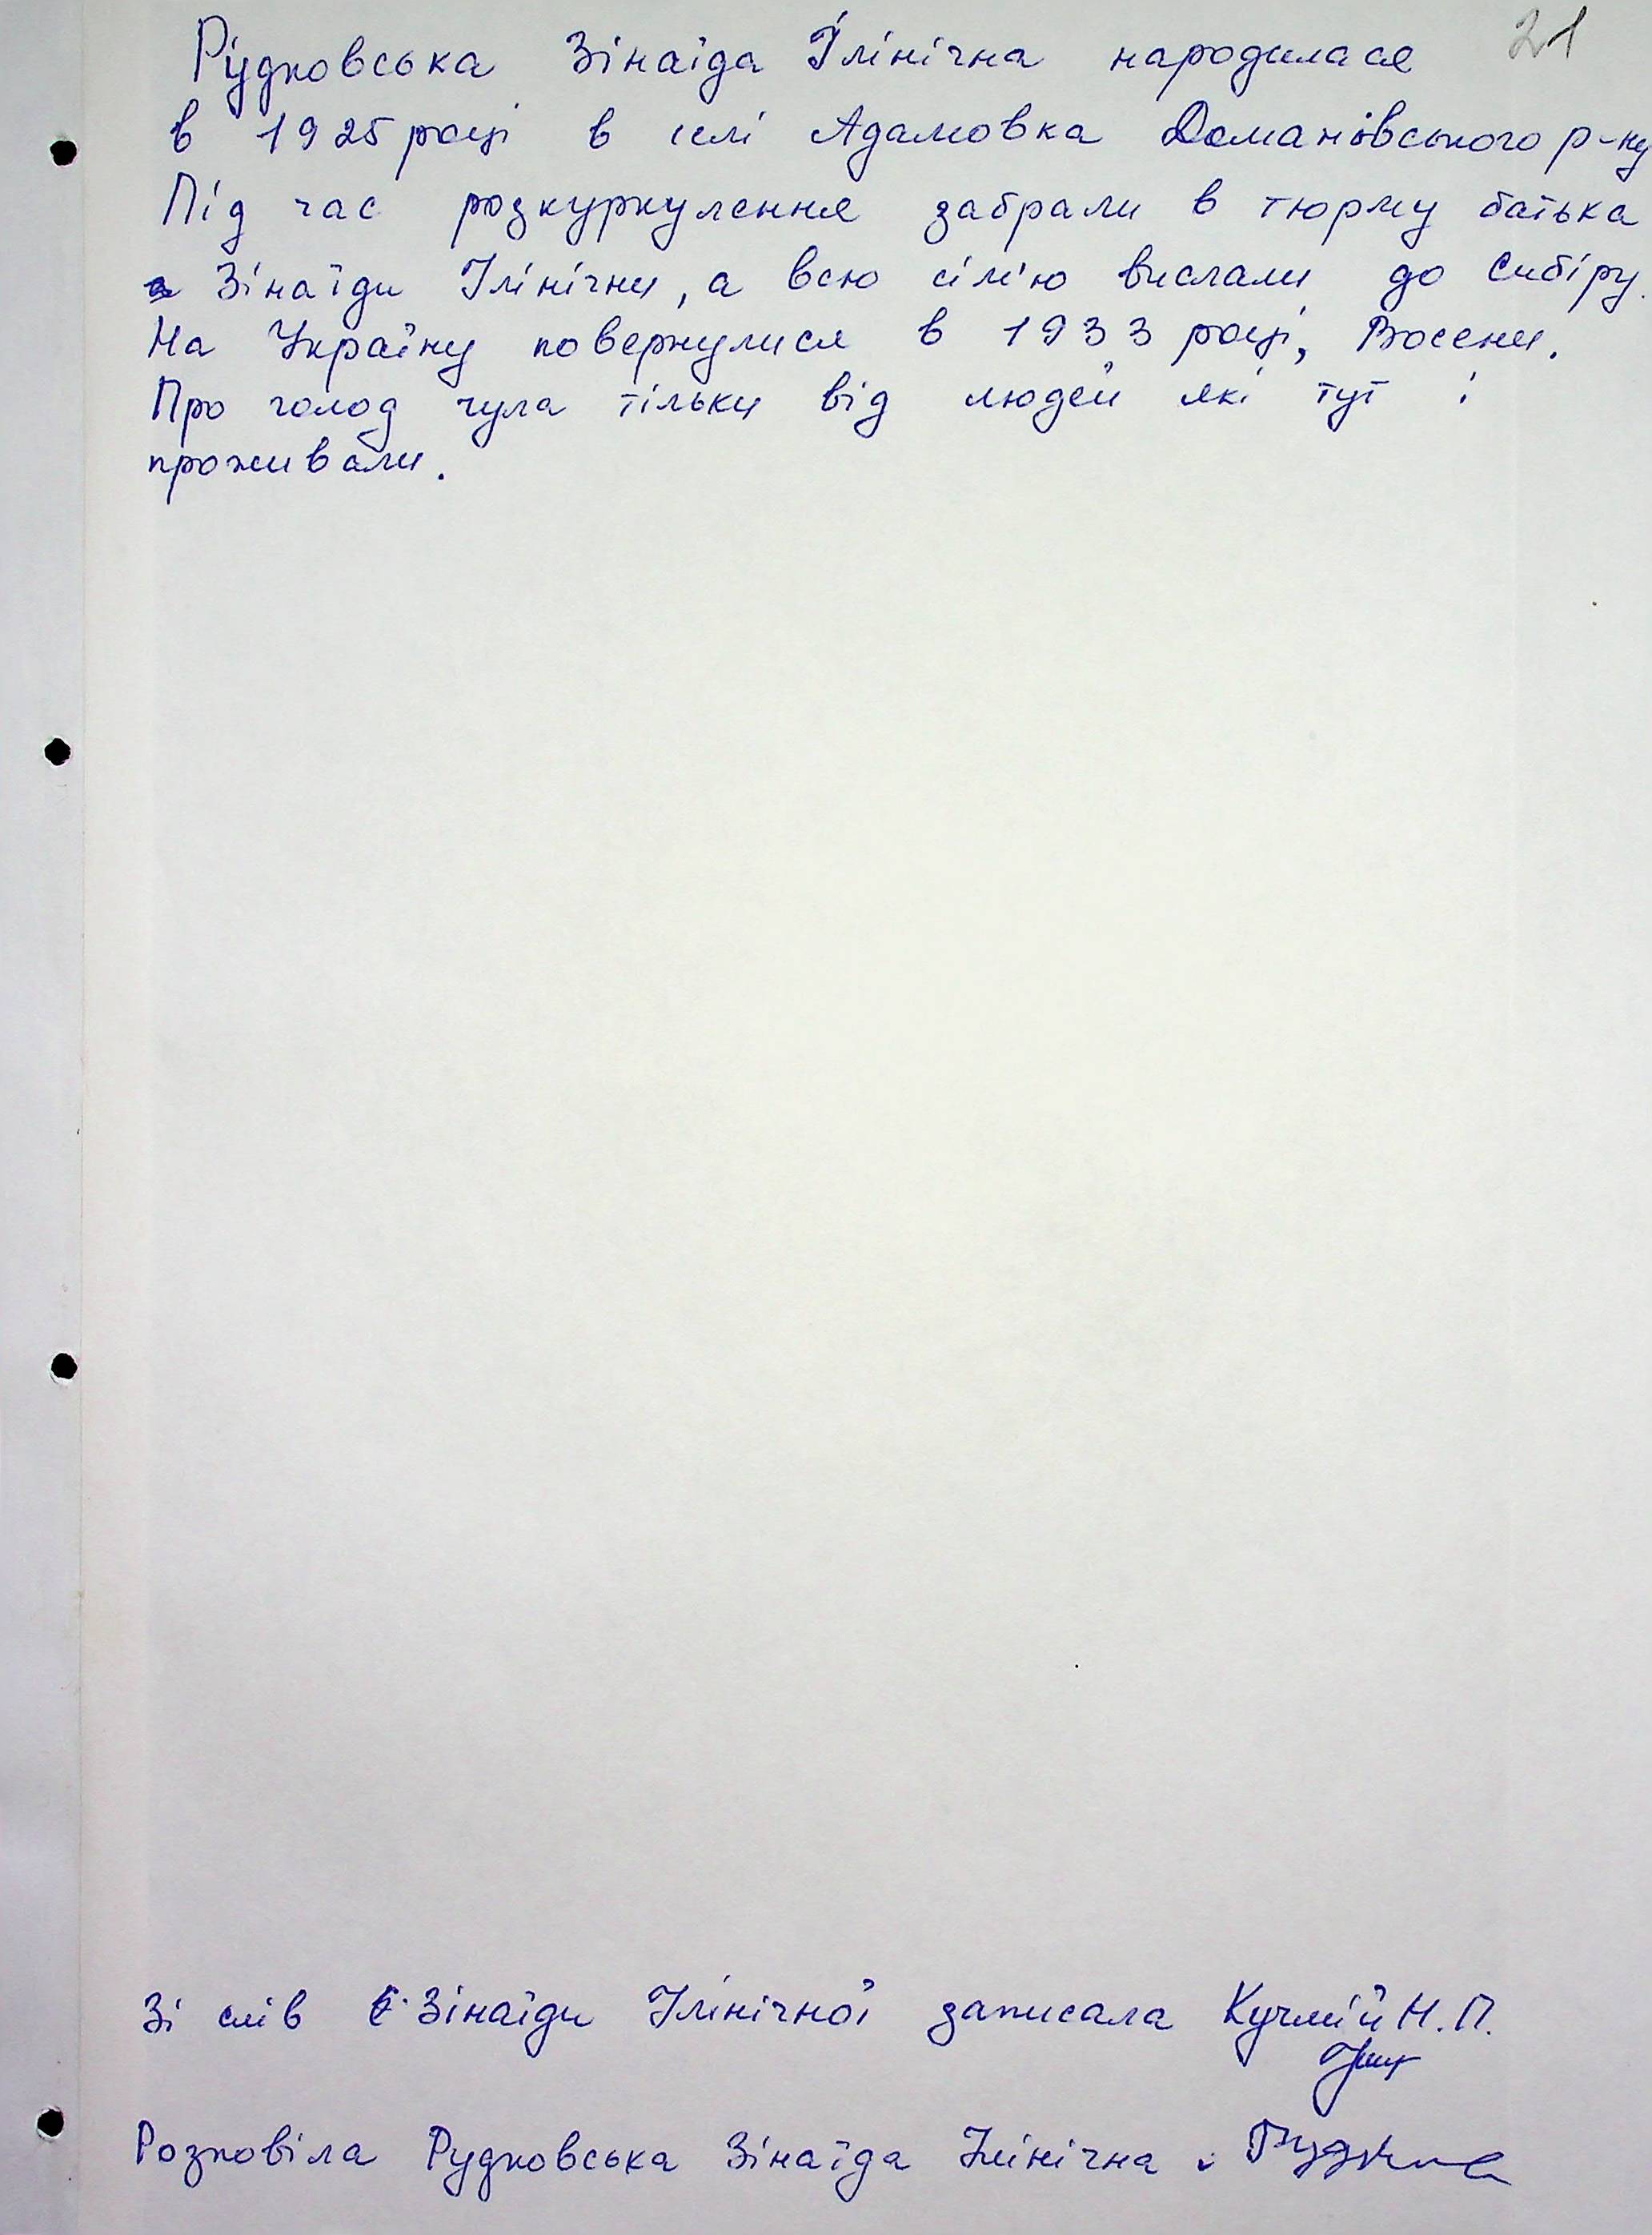 21
Рудковська Зінаїда Ілінічна народилася
в 1925 році в селі Адамовка Доманівського р-ну
Під час розкуркулення забрали в тюрму батька
Зінаїди Ілінічни, а всю сім'ю вислали до Сибіру.
На Україну повернулися в 1933 році, Восени.
Про голод чула тільки від людей які тут і
проживали.
Зі слів Зінаїди Ілінічної записала Кучмій Н.П.
Розповіла Рудковська Зінаїда Ілінічна